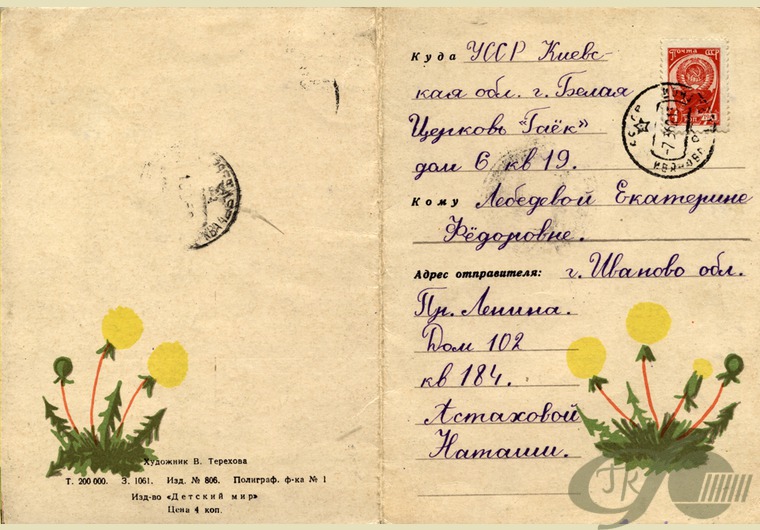 Художник В. Терехова
Т. 200 000. З. 1061. Изд. № 806. Полиграф. ф-ка № 1
Изд-во «Детский мир»
Цена 4 коп.
Куда УССР Киевс-
кая обл. г. Белая
Церковь "Гаёк"
дом 6 кв 19.
Кому Лебедевой Екатерине
Фёдоровне.
Адрес отправителя: г. Иваново обл.
Пр. Ленина.
Дом 102
кв 184.
Астаховой
Наташи.
ПОЧТА СССР
СССР